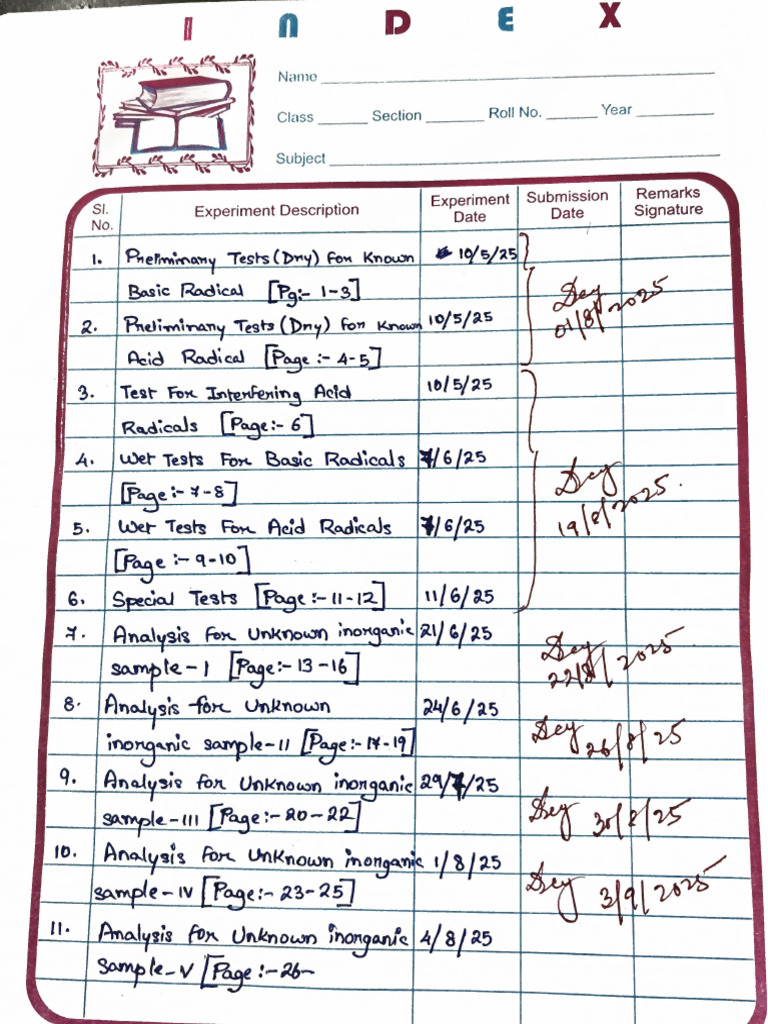 INDEX
Name
Class Section Roll No. Year
Subject
Sl. No. Experiment Description Experiment Date Submission Date Remarks Signature
1. Preliminary Tests (Dry) for Known 10/5/25
Basic Radical [Pg:- 1-3]
Dey
01/8/2025
2. Preliminary Tests (Dry) for Known 10/5/25
Acid Radical [Page :- 4-5]
3. Test For Interfering Acid 10/5/25
Radicals [Page:- 6]
4. Wet Tests For Basic Radicals 7/6/25
[Page:- 7-8]
Dey
19/8/2025.
5. Wet Tests For Acid Radicals 7/6/25
[Page :- 9-10]
6. Special Tests [Page:- 11-12] 11/6/25
7. Analysis for Unknown inorganic 21/6/25
sample-I [Page:- 13-16]
Dey
22/8/2025
8. Analysis for Unknown 24/6/25
inorganic sample-II [Page:- 17-19] Dey 26/8/25
9. Analysis for Unknown inorganic 29/7/25
sample-III [Page:- 20-22] Dey 30/8/25
10. Analysis for Unknown inorganic 1/8/25
sample-IV [Page:- 23-25] Dey 3/9/2025
11. Analysis for Unknown inorganic 4/8/25
sample-V [Page :- 26-